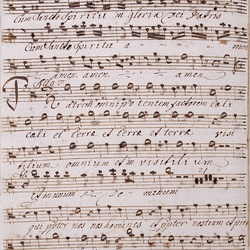 Cum Sancto Spiritu in gloria Dei Patris
Cum Sancto Spiritu a men
amen. amen. amen
Patrem omnipotentem factorem cæli
cæli et terræ et terræ et terræ visi
bilium omnium et in visibilium
Et in unum Do minum
qui propter nos homines et propter nostram et propter